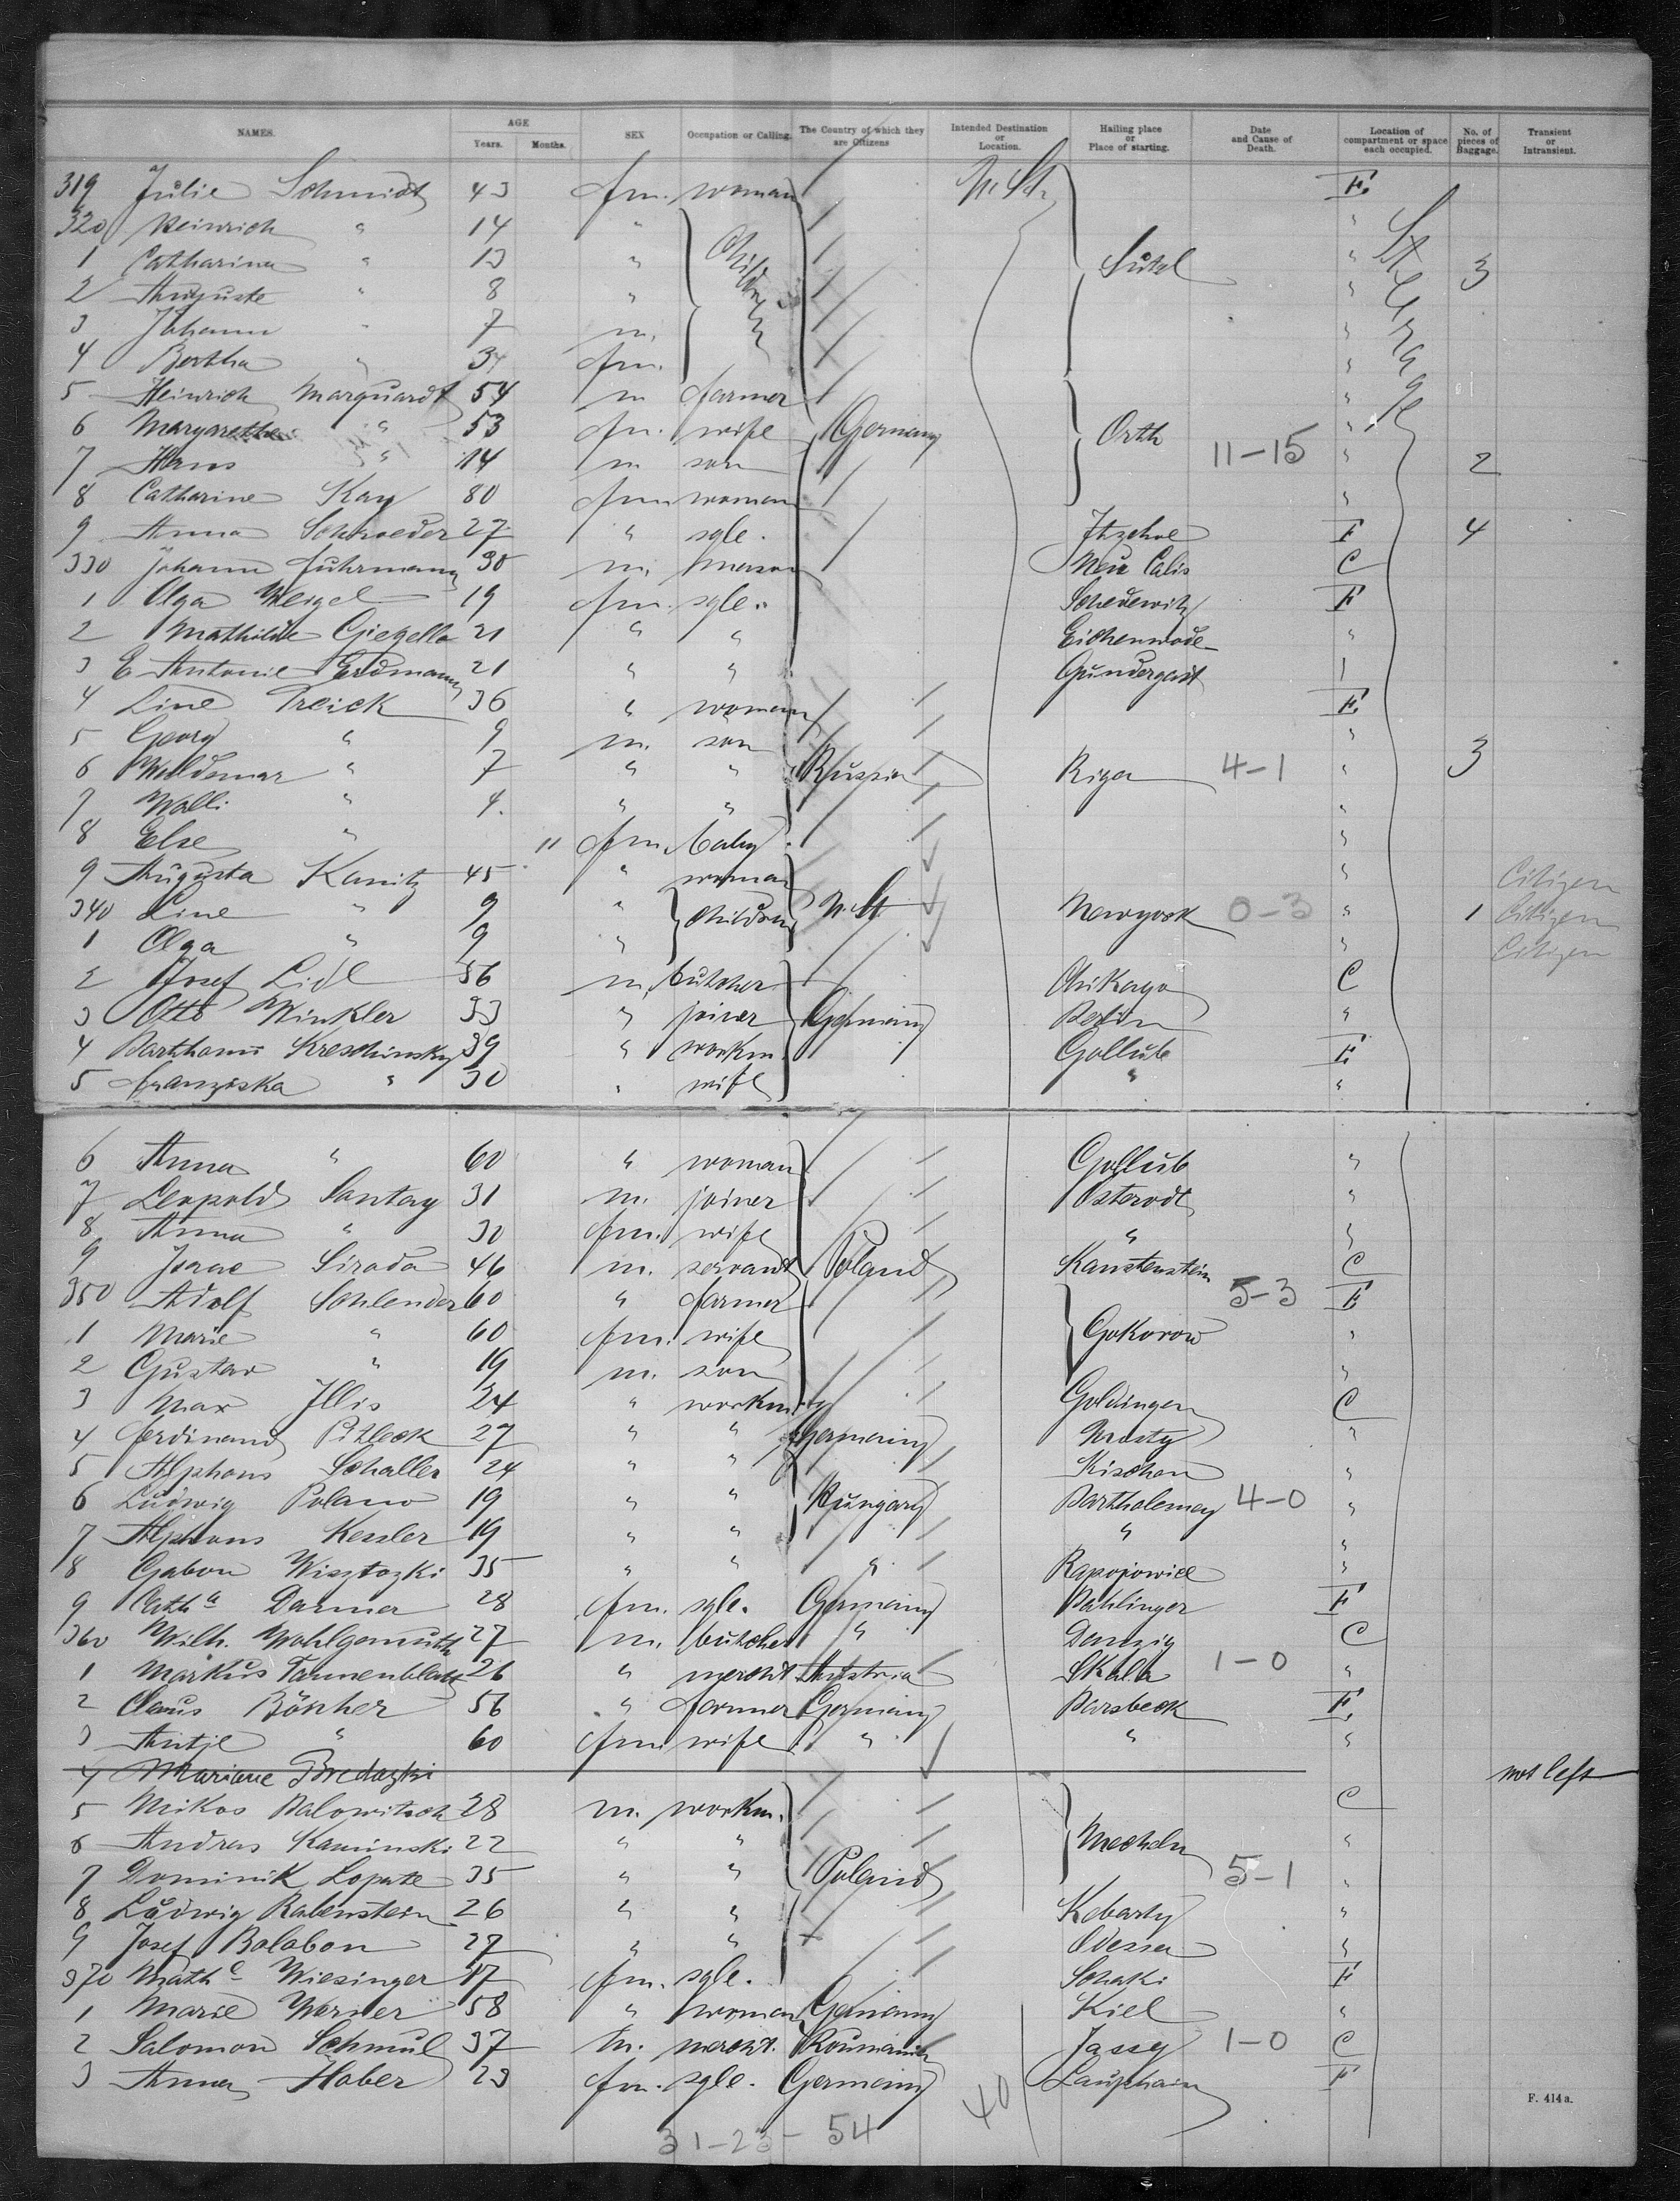 NAMES. AGE Years. Months. SEX Occupation or Calling. The Country of which they are Citizens Intended Destination or Location. Hailing place or Place of starting. Date and Cause of Death. Location of compartment or space each occupied. No. of pieces of Baggage. Transient or Intransient.
319 Julie Schmidt 43 fm. woman F.
320 Heinrich " 14 "
1 Catharina " 13 " Children Sütel " Steerage 3
2 Auguste " 8 " "
3 Johann " 7 m. "
4 Bertha " fm. "
5 Heinrich Marquardt 54 m farmer "
6 Margarethe " 53 fm. wife Germany Orth "
7 Hans " 14 m son 11-15 " 2
8 Catharine Kay 80 fm woman "
9 Anna Schroeder 27 " sgle. Itzehoe F 4
330 Johann Fuhrmann 30 m. mason Neu Calis C
1 Olga Weigel 19 fm. sgle. Schedewitz F
2 Mathilde Giezella 21 " " Eichenwode "
3 E Antonie Erdmann 21 " " Gundergast
4 Line Treick 36 " woman F.
5 Georg " 9 m. son "
6 Woldemar " 7 " " Russia Riga 4-1 " 3
7 Walli " 4. " " "
8 Else " 11 fm. baby "
9 Augusta Kanitz 45 " woman " Citizen
340 Line " 9 " children N. St Newyork 0-3 " 1 Citizen
1 Olga " 9 " " Citizen
2 Josef Lidl 56 m. butcher Chikago C
3 Otto Winkler 33 " joiner Germany Berlin "
4 Kreschinsky 39 " workm. Gollub F.
5 Franziska " 30 " wife " "
6 Anna " 60 " woman Gollub "
7 Leopold Santay 31 m. joiner Osterodt "
8 Anna " 30 fm. wife " "
9 Isaac Sirada 46 m. servant Poland Kanstenstein C
350 Adolf Schlender 60 " farmer 5-3 F
1 Marie " 60 fm. wife Gokorow "
2 Gustav " 19 m. son "
3 Max Illis 24 " workm. Goldingen C
4 Ferdinand Pitleck 27 " " Germany "
5 Alphons Schaller 24 " " Kischen "
6 Ludwig Polano 19 " " Hungary Bartholemey 4-0 "
7 Alphons Kessler 19 " " " "
8 Gabon Wisztozki 35 " " " Rapojowice "
9 Catha Darmer 28 fm. sgle. Germany Bahlinger F
360 Wilh. Wohlgemuth 27 m. butcher " Danzig C
1 Markus Tannenblatt 26 " mercht Austria Skala 1-0 "
2 Claus Böhher 56 " farmer Germany Barsbeck F.
3 Antje " 60 fm. wife " " "
4 Mariane Bredazki not left
5 Mikos Balowitsch 28 m. workm. C
6 Andras Kaminski 22 " " Mecheln "
7 Dominik Lopate 35 " " Poland 5-1 "
8 Ludwig Rabenstein 26 " " Kobarty "
9 Josef Balabon 27 " " Odessa "
370 Mathe Wiesinger 17 fm. sgle. Schaki F
1 Marie Werner 58 " woman Germany Kiel "
2 Salomon Schmul 37 m. mercht. Roumania Jassy 1-0 C
3 Anna Haber 23 fm. sgle. Germany Laupheim F
F. 414 a.
31-23- 54 40